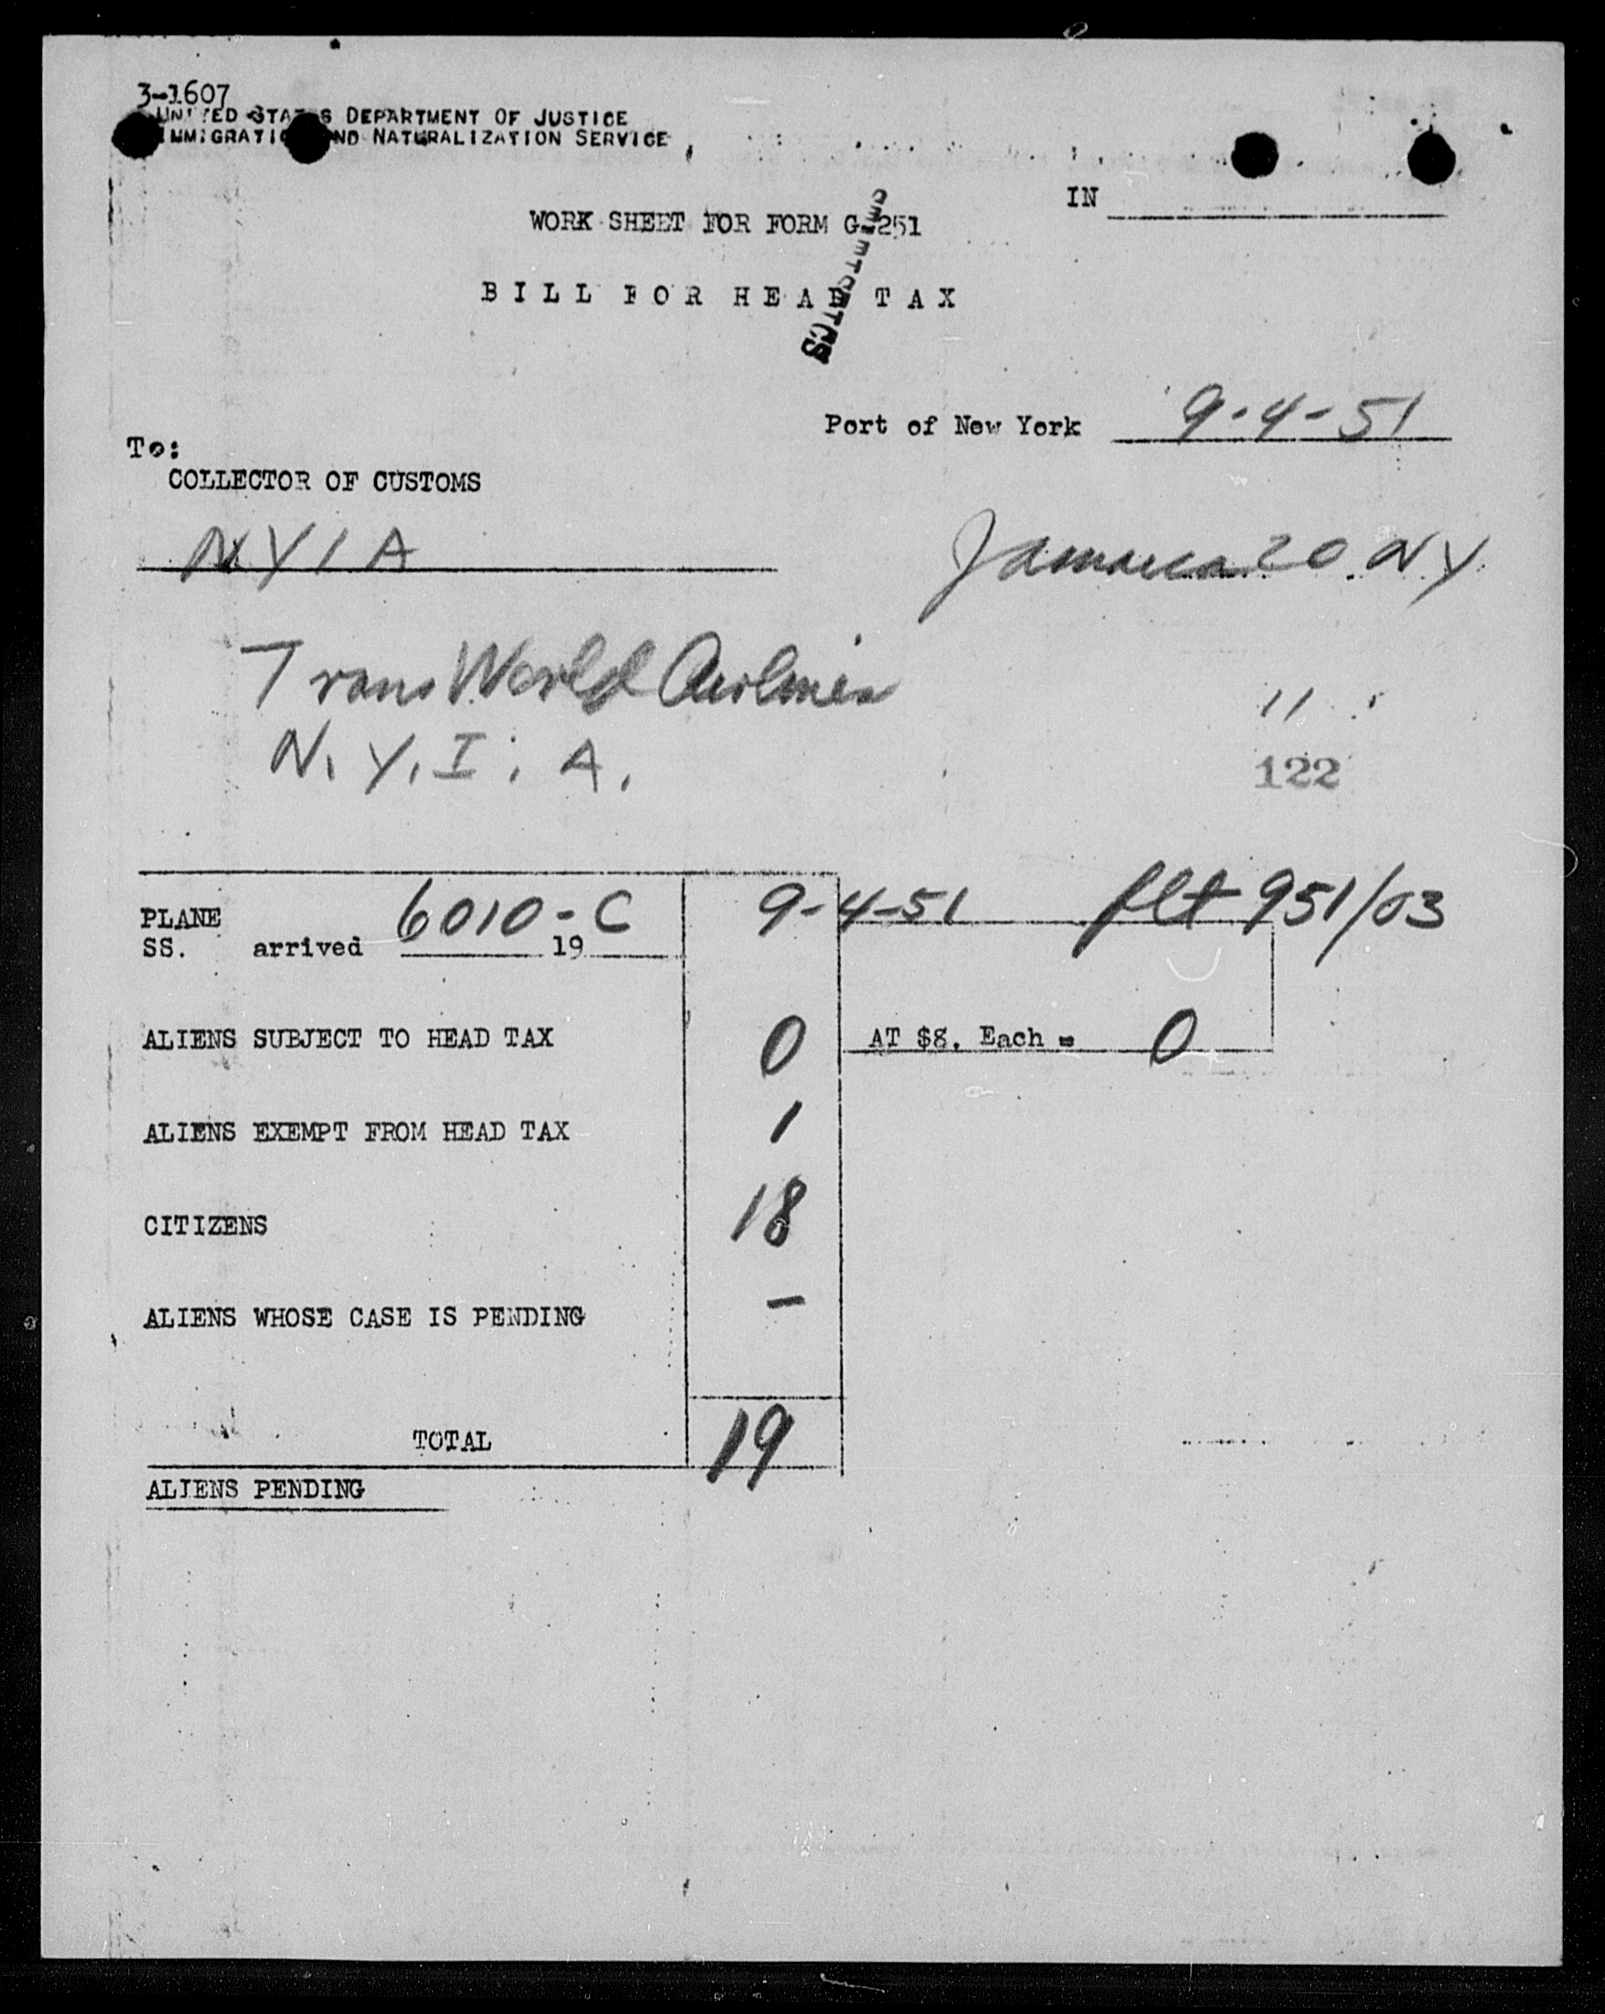 3-1607
UNITED STATES DEPARTMENT OF JUSTICE
IMMIGRATION AND NATURALIZATION SERVICE
IN
WORK SHEET FOR FORM G-251
BILL FOR HEAD TAX
Port of New York 9-4-51
To:
COLLECTOR OF CUSTOMS
NYIA Jamaica 20 NY
Trans World Airlines
N.Y.I.A. 11
122
PLANE 6010-C 9-4-51 flt 951/03
SS. arrived 19
ALIENS SUBJECT TO HEAD TAX 0 AT $8. Each = 0
ALIENS EXEMPT FROM HEAD TAX 1
CITIZENS 18
ALIENS WHOSE CASE IS PENDING -
TOTAL 19
ALIENS PENDING